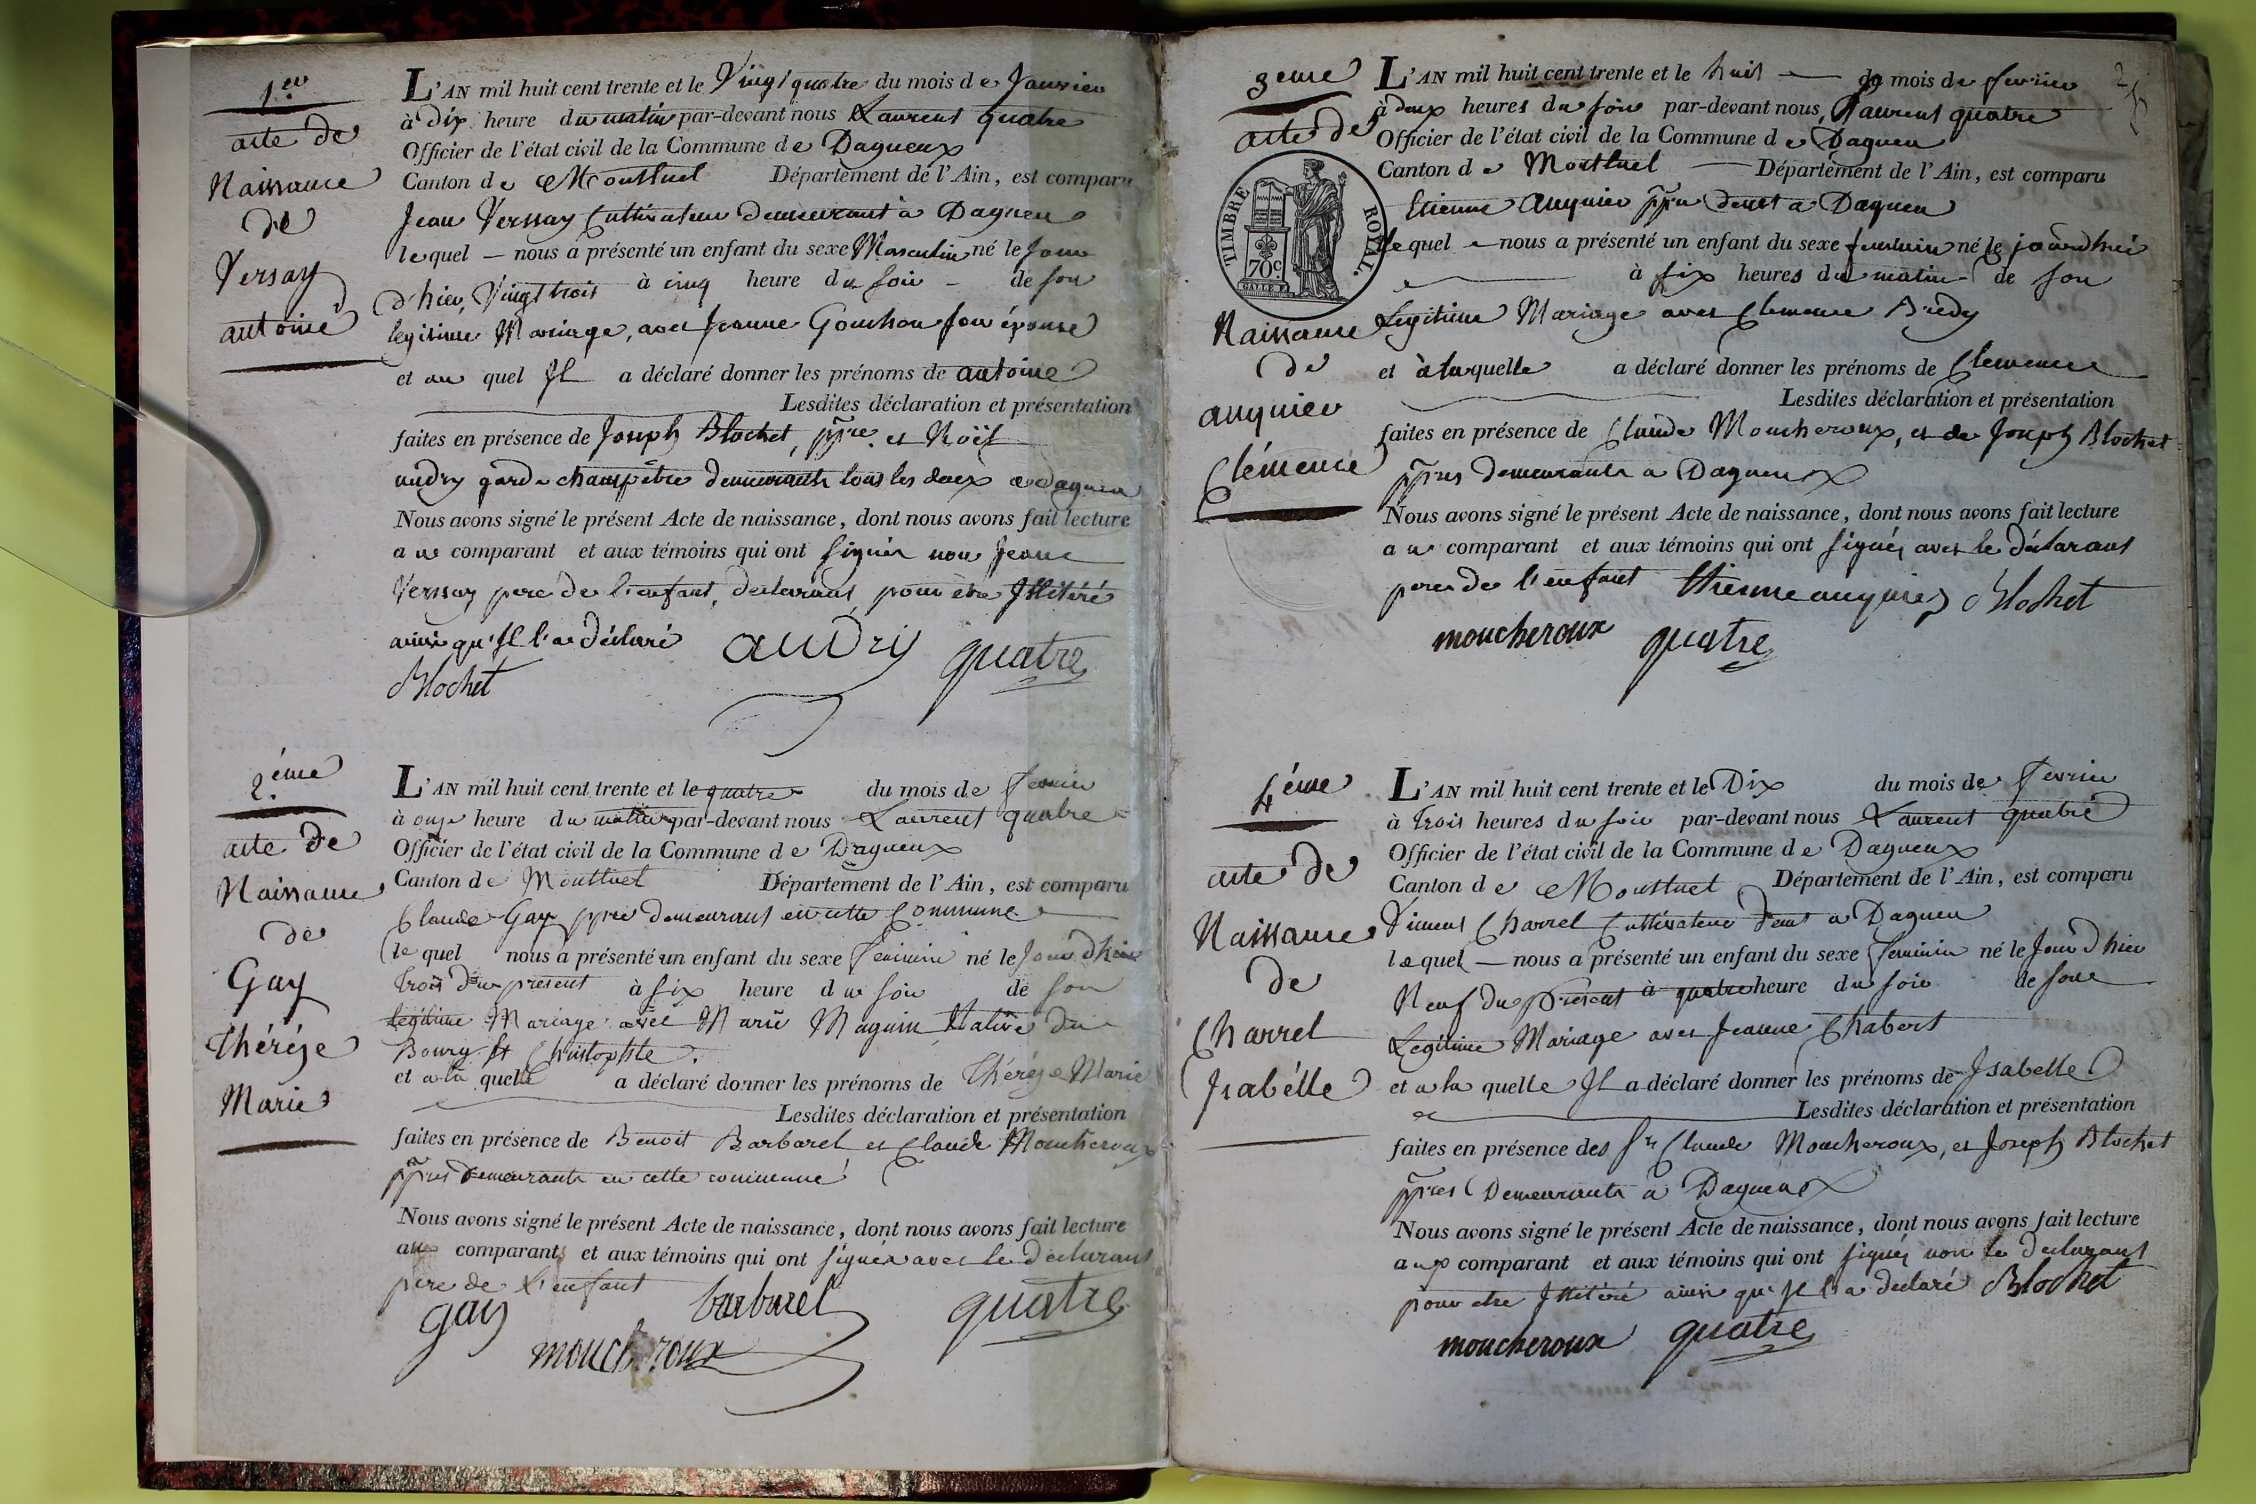 1.er
acte de
Naissance
de
Versay
antoine
L'AN mil huit cent trente et le Vingt quatre du mois de Janvier
à Dix heure du matin par-devant nous Laurent quatre
Officier de l'état civil de la Commune de Dagneux
Canton de Montluel Département de l'Ain, est comparu
Jean Versay Cultivateur demeurant à Dagneu
lequel — nous a présenté un enfant du sexe Masculin né le Jour
d'hier, Vingt trois à cinq heure du soir — de son
legitime Mariage, avec Jeanne Gonchon son épouse
et au quel Il a déclaré donner les prénoms de antoine
Lesdites déclaration et présentation
faites en présence de Joseph Blochet, ppre. et Noël
audry garde champêtre demeurants tous les deux a dagneu
Nous avons signé le présent Acte de naissance, dont nous avons fait lecture
au comparant et aux témoins qui ont signés non Jeane
Versay pere de l'enfant, declarant, pour être Illitéré
ainsi qu'Il l'a déclaré audry quatre
Blochet
2.éme
acte de
Naissance
de
Gay
Théréze
Marie
L'AN mil huit cent trente et le quatre du mois de fevrier
à onze heure du matin par-devant nous Laurent quatre
Officier de l'état civil de la Commune de Dagneux
Canton de Montluel Département de l'Ain, est comparu
Claude Gay ppre demeurant en cette Commune
lequel nous a présenté un enfant du sexe feminin né le Jour d'hier
trois du présent à six heure du soir de son
legitime Mariage avec Marie Maguin Native du
Bourg St Christophle.
et a la quelle a déclaré donner les prénoms de Théréze Marie
Lesdites déclaration et présentation
faites en présence de Benoit Barbarel et Claude Moucheroux
ppres demeurants en cette commune
Nous avons signé le présent Acte de naissance, dont nous avons fait lecture
aux comparants et aux témoins qui ont signés avec le declarant
pere de l'enfant
gay barbarel quatre
moucheroux
3eme
acte de
TIMBRE ROYAL.
70c.
Naissance
de
anquier
Clémence
L'AN mil huit cent trente et le huit — du mois de fevrier
à deux heures du soir par-devant nous, Laurent quatre
Officier de l'état civil de la Commune de Dagneu
Canton de Montluel — Département de l'Ain, est comparu
Etienne anquier ppre demt a Dagneu
lequel — nous a présenté un enfant du sexe feminin né le jourdhui
à six heures du matin — de son
Legitime Mariage avec Clemence Bredy
et à laquelle a déclaré donner les prénoms de Clemence
Lesdites déclaration et présentation
faites en présence de Claude Moucheroux, et de Joseph Blochet
ppres demeurants a Dagneux
Nous avons signé le présent Acte de naissance, dont nous avons fait lecture
au comparant et aux témoins qui ont signés avec le déclarant
pere de l'enfant Etienne anquier Blochet
moucheroux quatre
4éme
acte de
Naissance
de
Charrel
Isabélle
L'AN mil huit cent trente et le Dix du mois de fevrier
à trois heures du soir par-devant nous Laurent quatre
Officier de l'état civil de la Commune de Dagneux
Canton de Montluel Département de l'Ain, est comparu
Vincent Charrel Cultivateur demt a Dagneu
lequel — nous a présenté un enfant du sexe feminin né le Jour d'hier
Neuf du present à quatre heure du soir de son
Legitime Mariage avec Jeanne Chabert
et a la quelle Il a déclaré donner les prénoms de Isabelle
Lesdites déclaration et présentation
faites en présence des Srs Claude Moucheroux, et Joseph Blochet
ppres Demeurants a Dagneux
Nous avons signé le présent Acte de naissance, dont nous avons fait lecture
aux comparant et aux témoins qui ont signés non le declarant
pour etre Illitéré ainsi qu'Il l'a declaré Blochet
moucheroux quatre